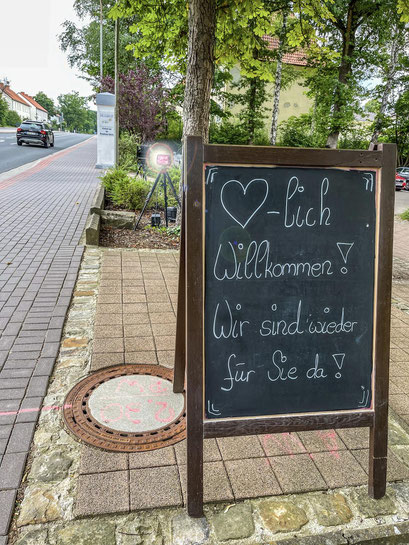 "♡-lich"
Willkommen!
Wir sind wieder
für Sie da!